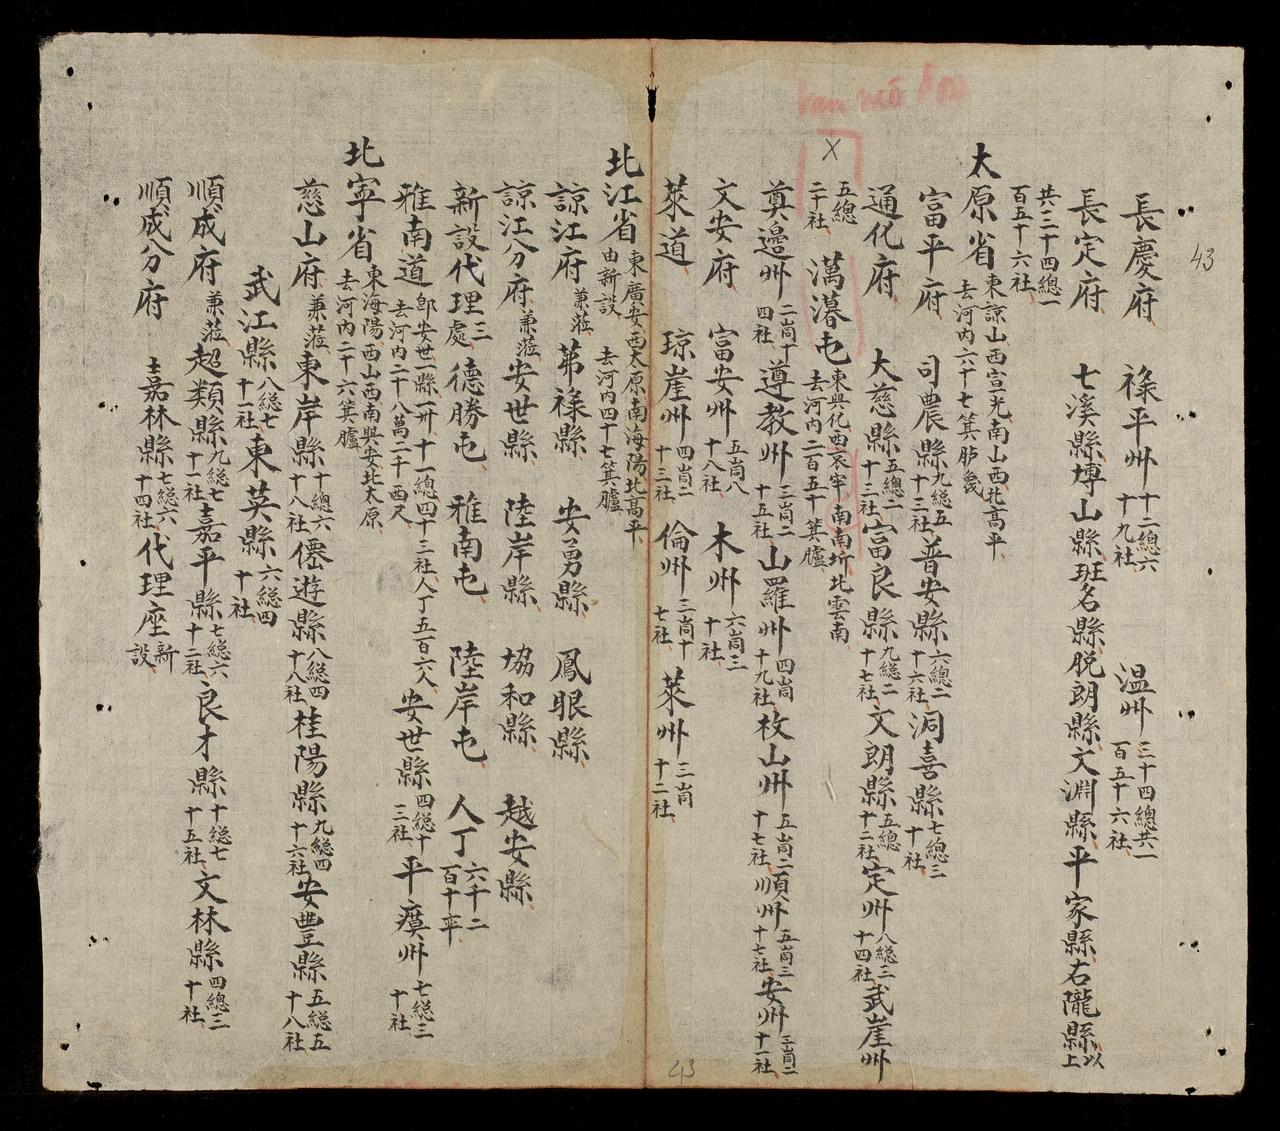 長慶府 祿平州 十二總六十九社 温州 三十四總共一百五十六社
長定府 七溪縣 博山縣 班名縣 脱朗縣 文淵縣 平家縣 右隴縣 以上
共三十四總一百五十六社
太原省 東諒山西宣光南山西北高平 去河内六十七箕胪
富平府 司農縣 九総五十三社 普安縣 六總二十六社 洞喜縣 七總三十社
通化府 大慈縣 五總二十三社 富良縣 九総二十七社 文朗縣 五總十二社 定州 八総三十四社 武崖州
五總二十社 X 満濅屯 東興化西哀牢南南圻北雲南 去河内二百五十箕臚
奠邉州 二峝十四社 遵教州 三峝二十五社 山羅州 四峝十九社 枚山州 五峝二十七社 順州 五峝三十七社 安州 三峝二十一社
文安府 富安州 五峝八十八社 木州 六峝三十社
萊道 琼崖州 四峝二十三社 倫州 三峝十七社 萊州 三峝十二社
北江省 東廣安西太原南海陽北高平 由新設 去河内四十七箕臚
諒江府 兼蒞 苐祿縣 安勇縣 鳳眼縣
諒江分府 兼蒞 安世縣 陸岸縣 協和縣 越安縣
新設代理三處 德勝屯 雅南屯 陸岸屯 人丁六千二百十率
雅南道 郎安世二縣一州十一總四十三社人丁五百六人 去河内二十八萬二千西尺 安世縣 四総十三社 平㢜州 七総三十社
北寧省 東海陽西山西南興安北太原 去河内二十六箕臚
慈山府 兼蒞 東岸縣 十總六十八社 僊遊縣 八総四十八社 桂陽縣 九総四十六社 安豐縣 五総五十八社
武江縣 八総七十一社 東英縣 六総四十社
順成府 兼蒞 超類縣 九総七十社 嘉平縣 七総六十二社 良才縣 十総七十五社 文林縣 四總三十社
順成分府 嘉林縣 七総六十四社 代理座 新設
43
43